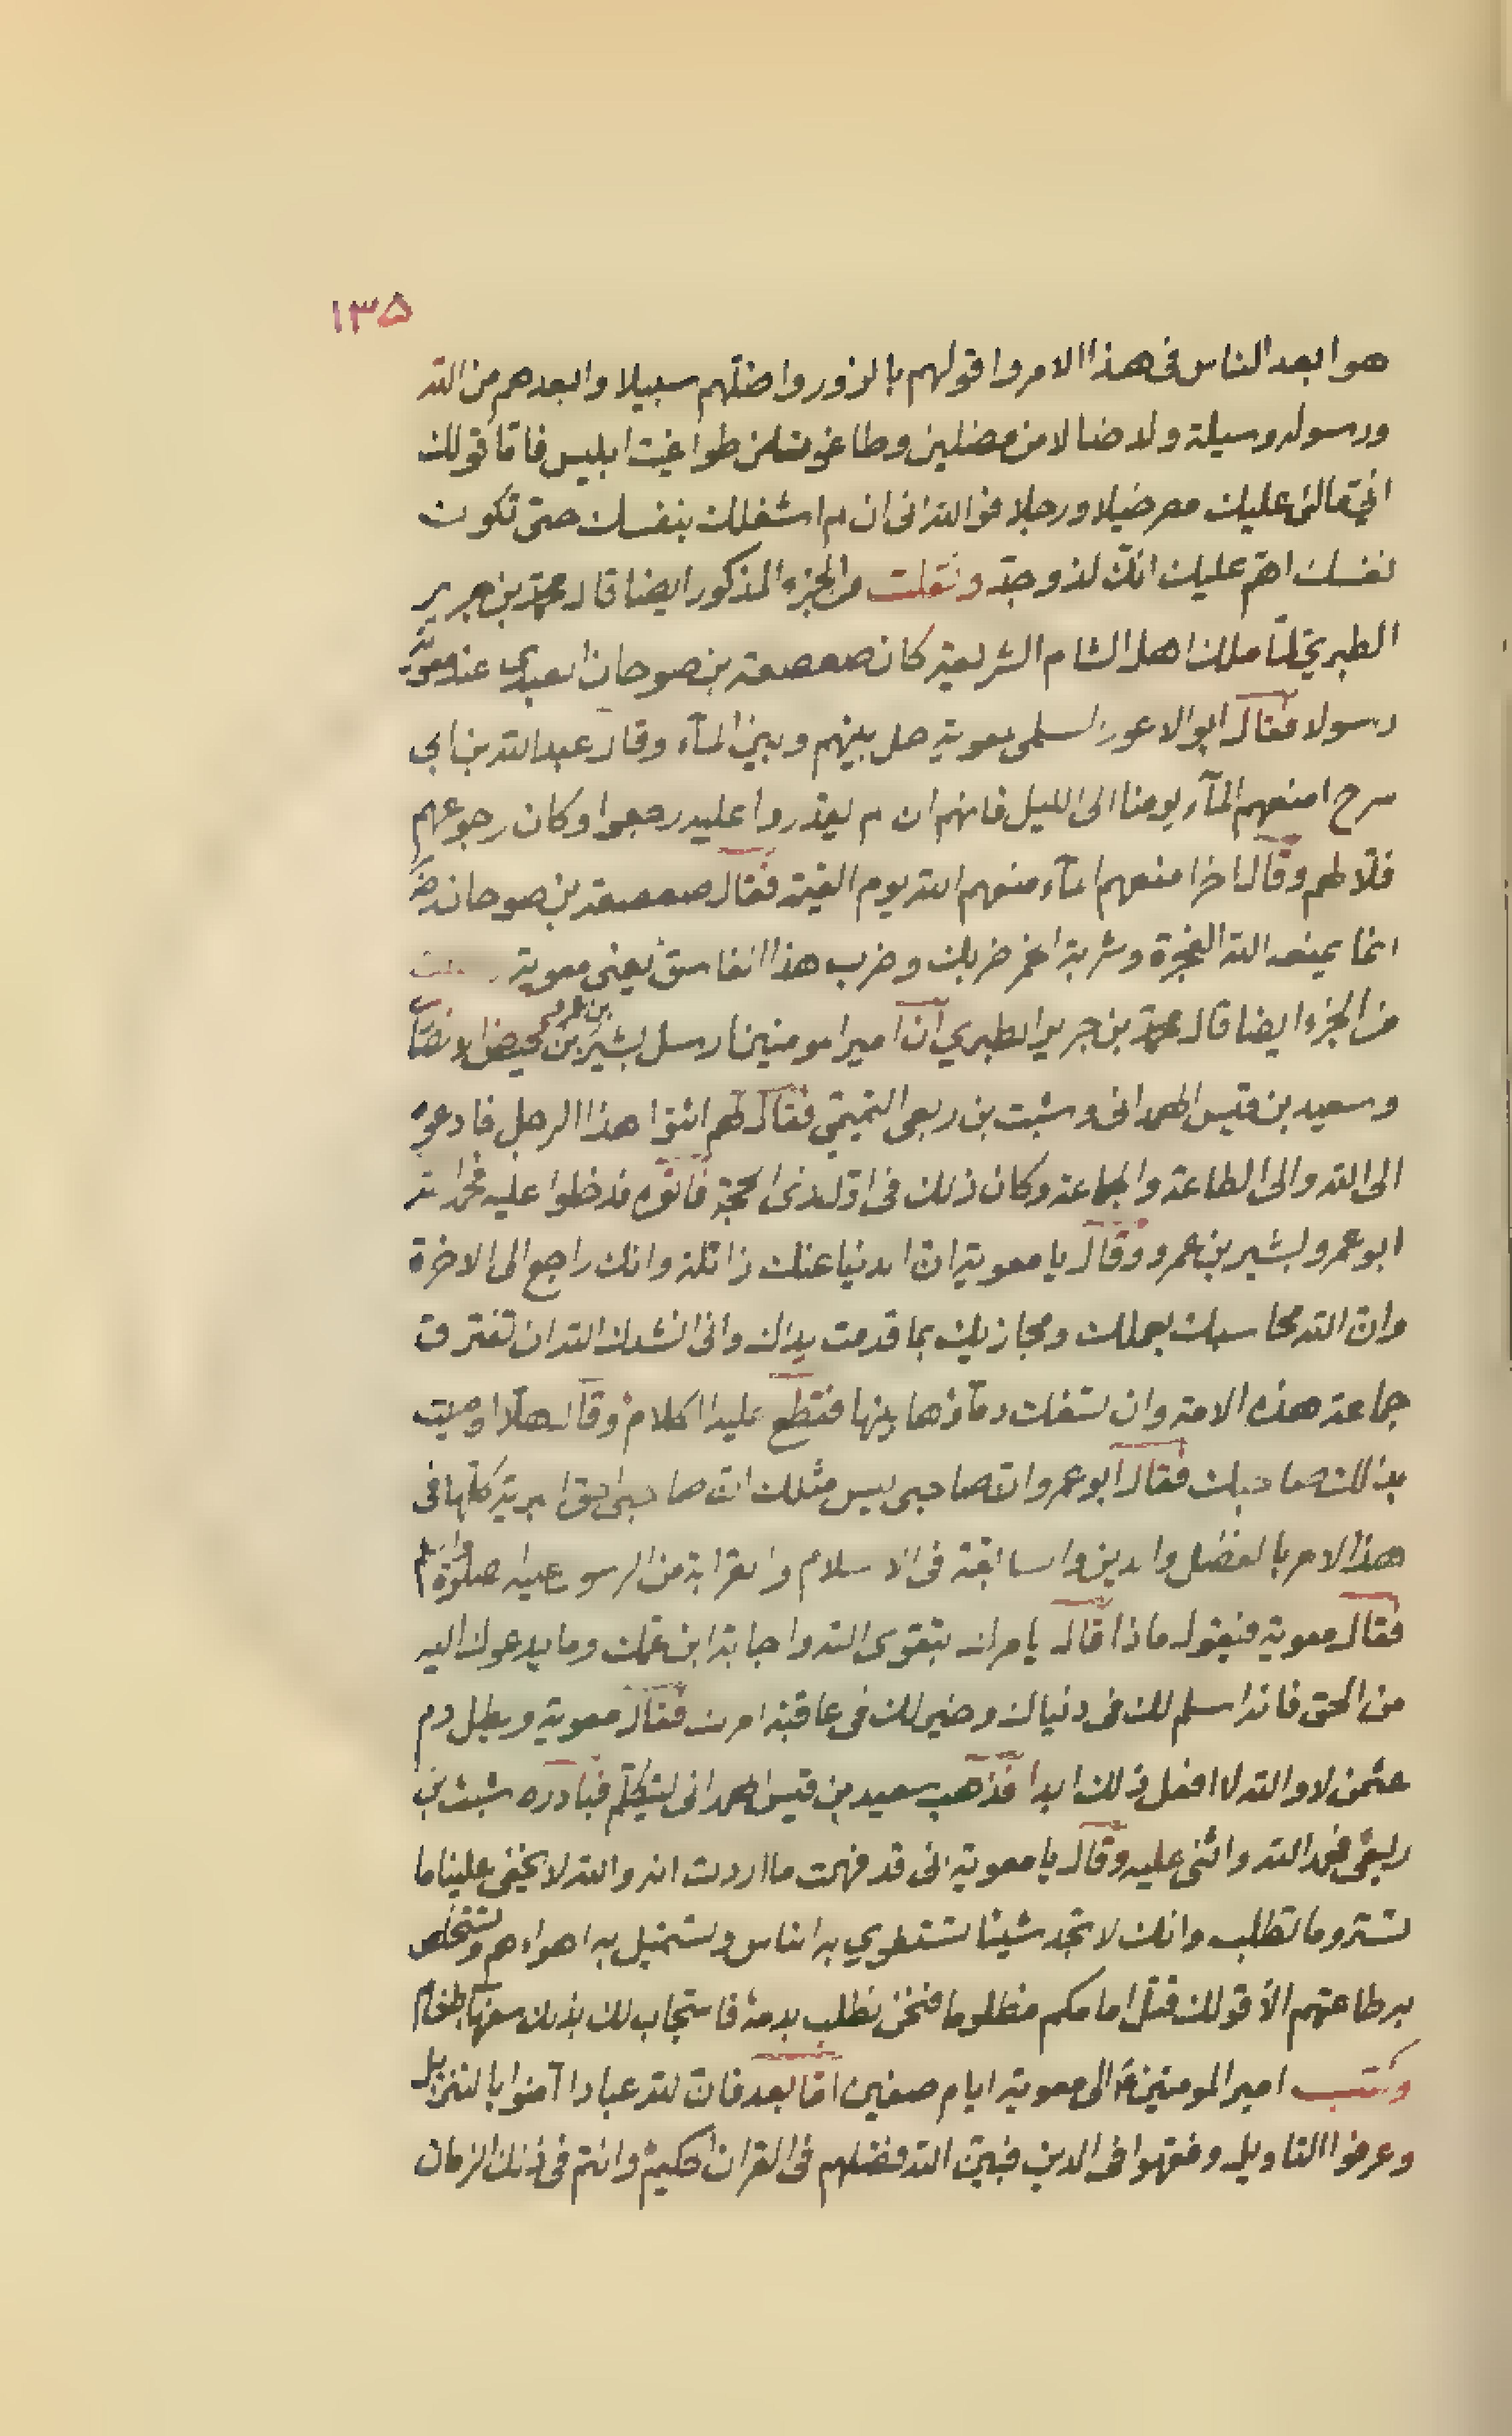 ١٣٥
هو ابعد الناس فى هذا الامر واقولهم بالزور واضلّهم سبيلا وابعدهم من الله
ورسوله وسيلة ولد ضالا من مضلين وطاغوت من طواغيت ابليس فامّا قولك
انى مالئ عليك مصر خيلا ورجلا فوالله انى ان لم اشغلك بنفسك حتى تكون
نفسك اهم عليك انك لذو جد ونقلت من الجزء المذكور ايضا قال محمد بن جرير
الطبرى لمّا ملك اهل الشام الشريعة كان صعصعة بن صوحان العبدى عند معوية
رسولا فقال ابو الاعور السلمى لمعوية حل بينهم وبين المآء وقال عبد الله بن ابى
سرح امنعهم المآء يومنا الى الليل فانهم ان لم يقدروا عليه رجعوا وكان رجوعهم
فلّا لهم وقال اخرا منعهم المآء منعهم الله يوم القيمة فقال صعصعة بن صوحان
انما يمنعه الله الفجرة وشربة الخمر ضربك وضرب هذا الفاسق يعنى معوية
من الجزء ايضا قال محمد بن جرير الطبري ان امير المومنين ارسل بشير بن عمرو بن محيض الانصا
وسعيد بن قيس الهمدانى وشبث بن ربعى التميمي فقال لهم ائتوا هذا الرجل فادعوه
الى الله والى الطاعة والجماعة وكان ذلك فى اول ذى الحجة فاتوه فدخلوا عليه فحمد الله
ابو عمرو بشير بن عمرو وقال يا معوية ان الدنيا عنك زائلة وانك راجع الى الاخرة
وان الله محاسبك بعملك ومجازيك بما قدمت يداك وانى انشدك الله ان تفترق
جماعة هذه الامة وان تسفك دمآؤها بينها فقطع عليه الكلام وقال هلّا اوصيت
بذلك صاحبك فقال ابو عمرو ان صاحبى ليس مثلك ان صاحبى احق البرية كلّها فى
هذا الامر بالفضل والدين والسابقة فى الاسلام والقرابة من الرسول عليه صلوة
فقال معوية فيقول ماذا قال يامرك بتقوى الله واجابة ابن عمّك وما يدعوك اليه
من الحق فانه اسلم لك فى دنياك وخير لك فى عاقبة امرك فقال معوية ويطل دم
عثمن لا والله لا افعل ذلك ابدا فذهب سعيد بن قيس الهمدانى ليتكلّم فبادره شبث بن
ربعى فحمد الله واثنى عليه وقال يا معوية انى قد فهمت ما اردت انه والله لا يخفى علينا ما
تستر وما تطلب وانك لا تجد شيئا تستغوي به الناس وتستميل به اهواءهم وتستخلص
به طاعتهم الا قولك قتل امامكم مظلوما فنحن نطلب بدمه فاستجاب لك بذلك سفهآ طغام
وكتب امير المومنين ع الى معوية ايام صفين امّا بعد فان لله عبادا آمنوا بالتنزيل
وعرفوا التاويل وفقهوا فى الدين فبيّن الله فضلهم فى القران الحكيم وانتم فى ذلك الزمان